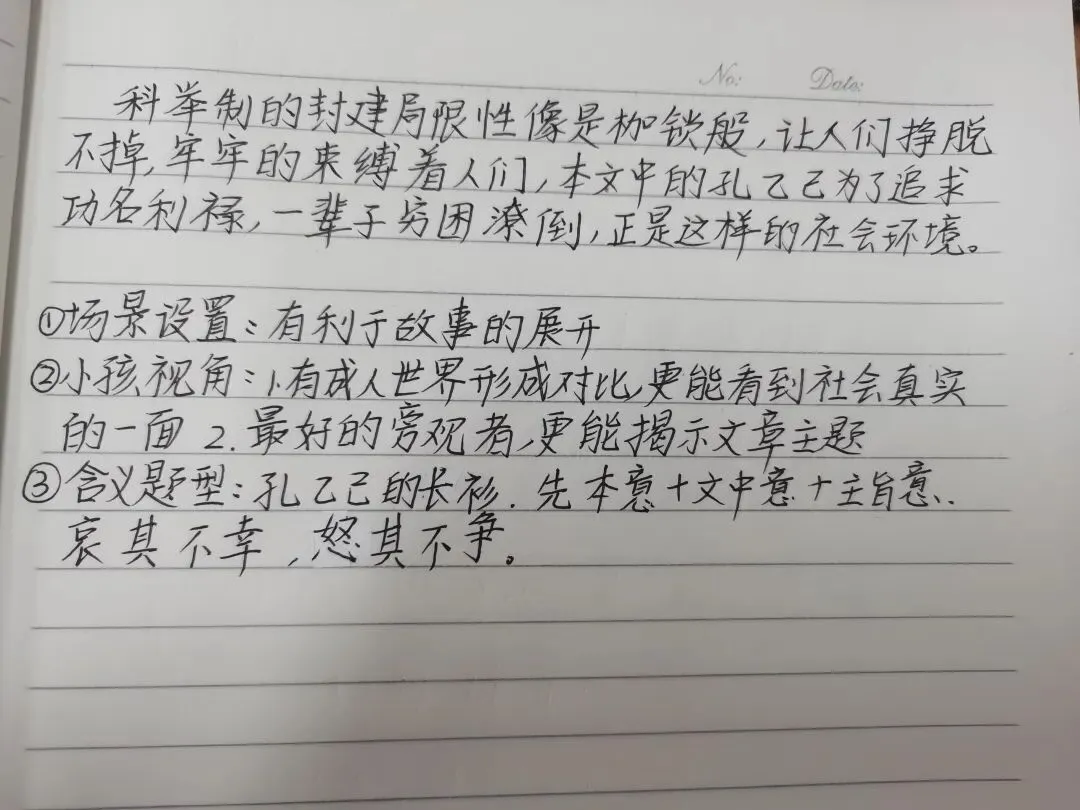 No: Date:
科举制的封建局限性像是枷锁般,让人们挣脱
不掉,牢牢的束缚着人们,本文中的孔乙己为了追求
功名利禄,一辈子穷困潦倒,正是这样的社会环境。
①场景设置:有利于故事的展开
②小孩视角:1.有成人世界形成对比,更能看到社会真实
的一面 2.最好的旁观者,更能揭示文章主题
③含义题型:孔乙己的长衫.先本意+文中意+主旨意..
哀其不幸,怒其不争。